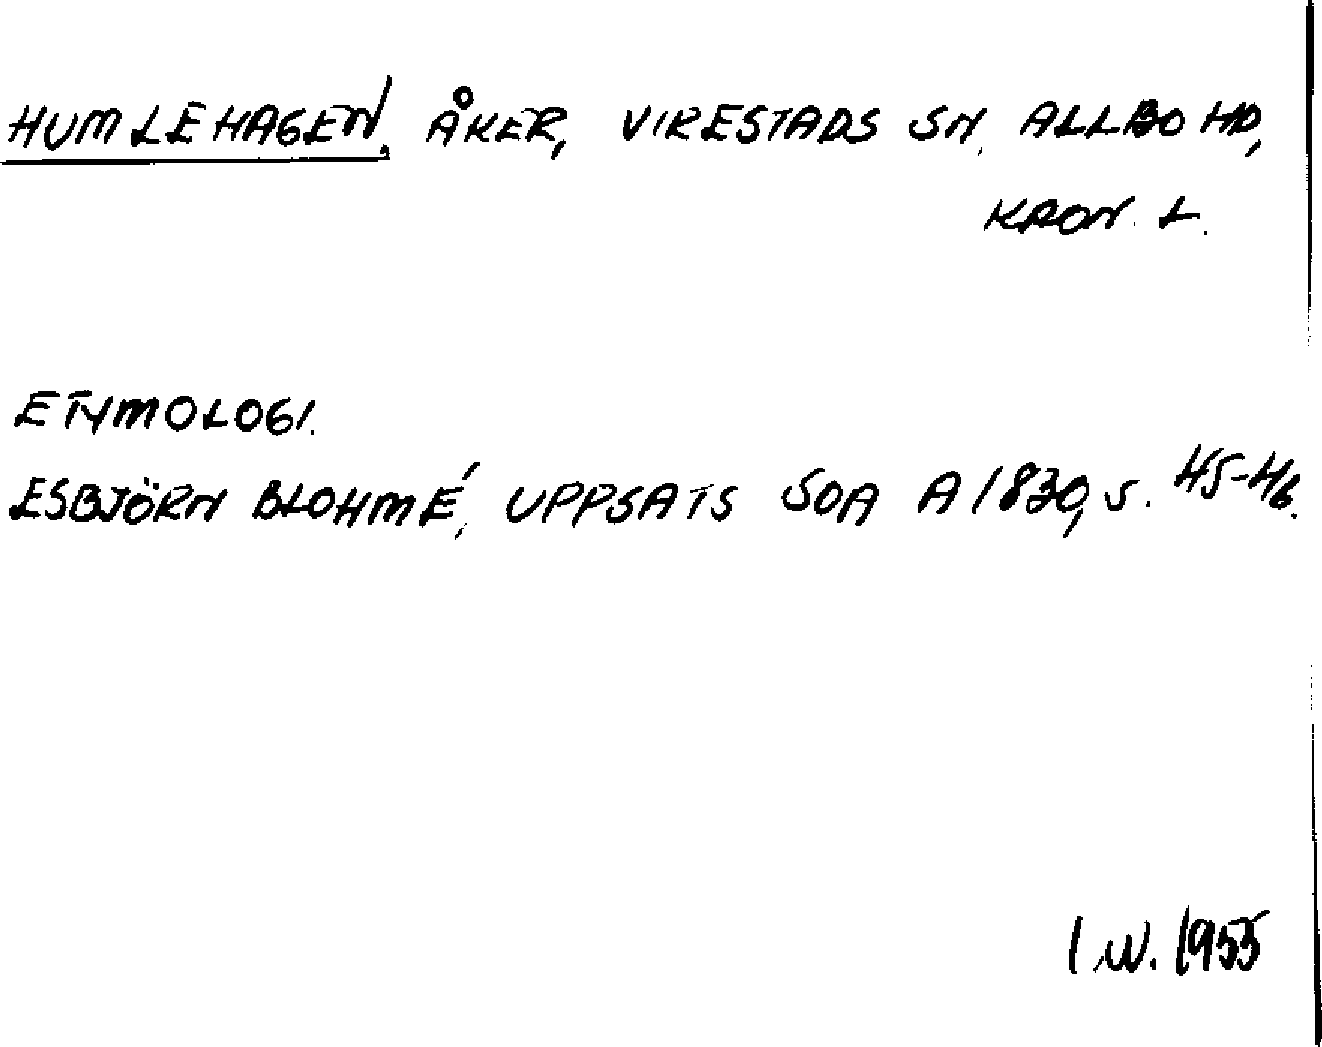 HUMLEHAGEN, ÅKER, VIRESTADS SN, ALLBO HD,
KRON. L.
ETYMOLOGI.
ESBJÖRN BLOHMÉ, UPPSATS SOA A 1830, S. 45-46.
I W. 1955